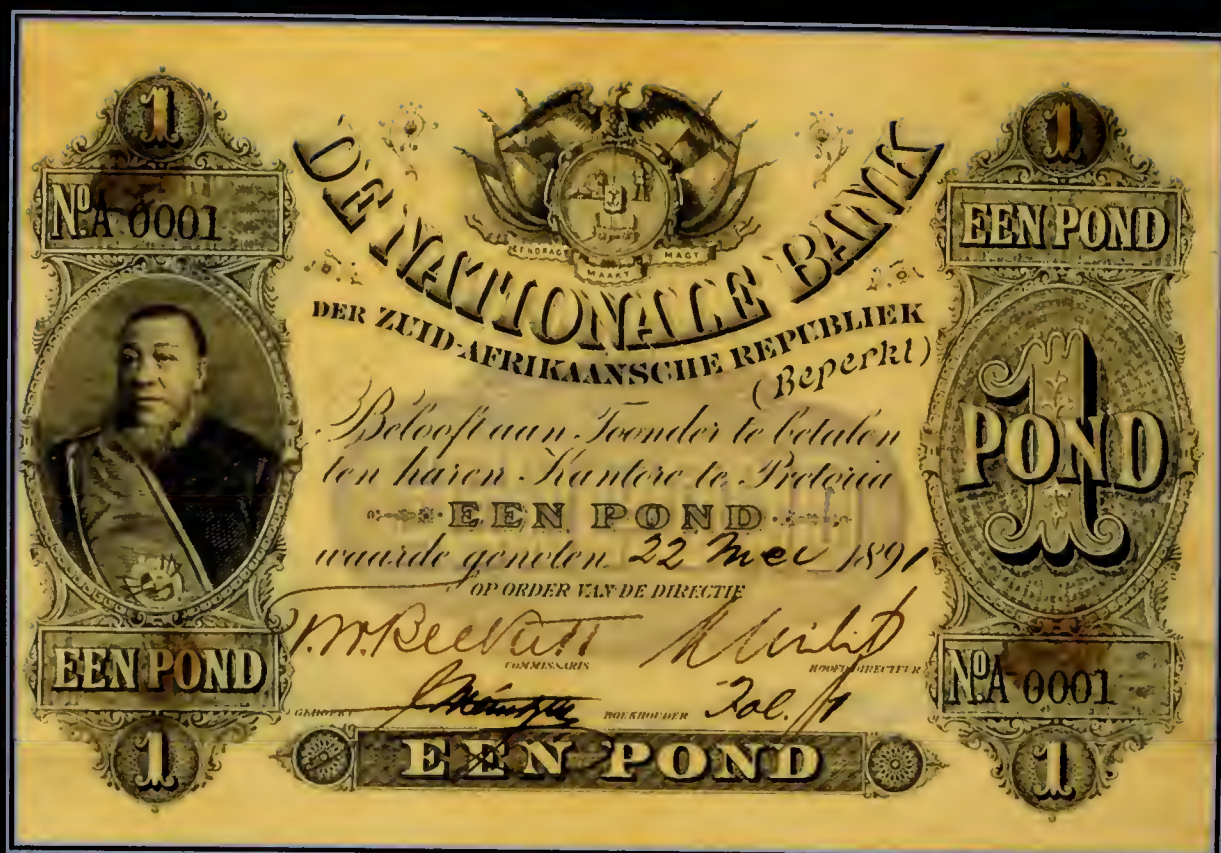 1
1
NO. A 0001
EEN POND
EENDRAGT MAAKT MAGT
DE NATIONALE BANK
DER ZUID-AFRIKAANSCHE REPUBLIEK
(Beperkt)
Belooft aan Toonder te betalen
ten haren Kantore te Pretoria
EEN POND
waarde genoten 22 Mei 1891
OP ORDER VAN DE DIRECTIE
1
POND
COMMISSARIS
HOOFD DIRECTEUR
EEN POND
NO. A 0001
BOEKHOUDER Fol.
EEN POND
1
1